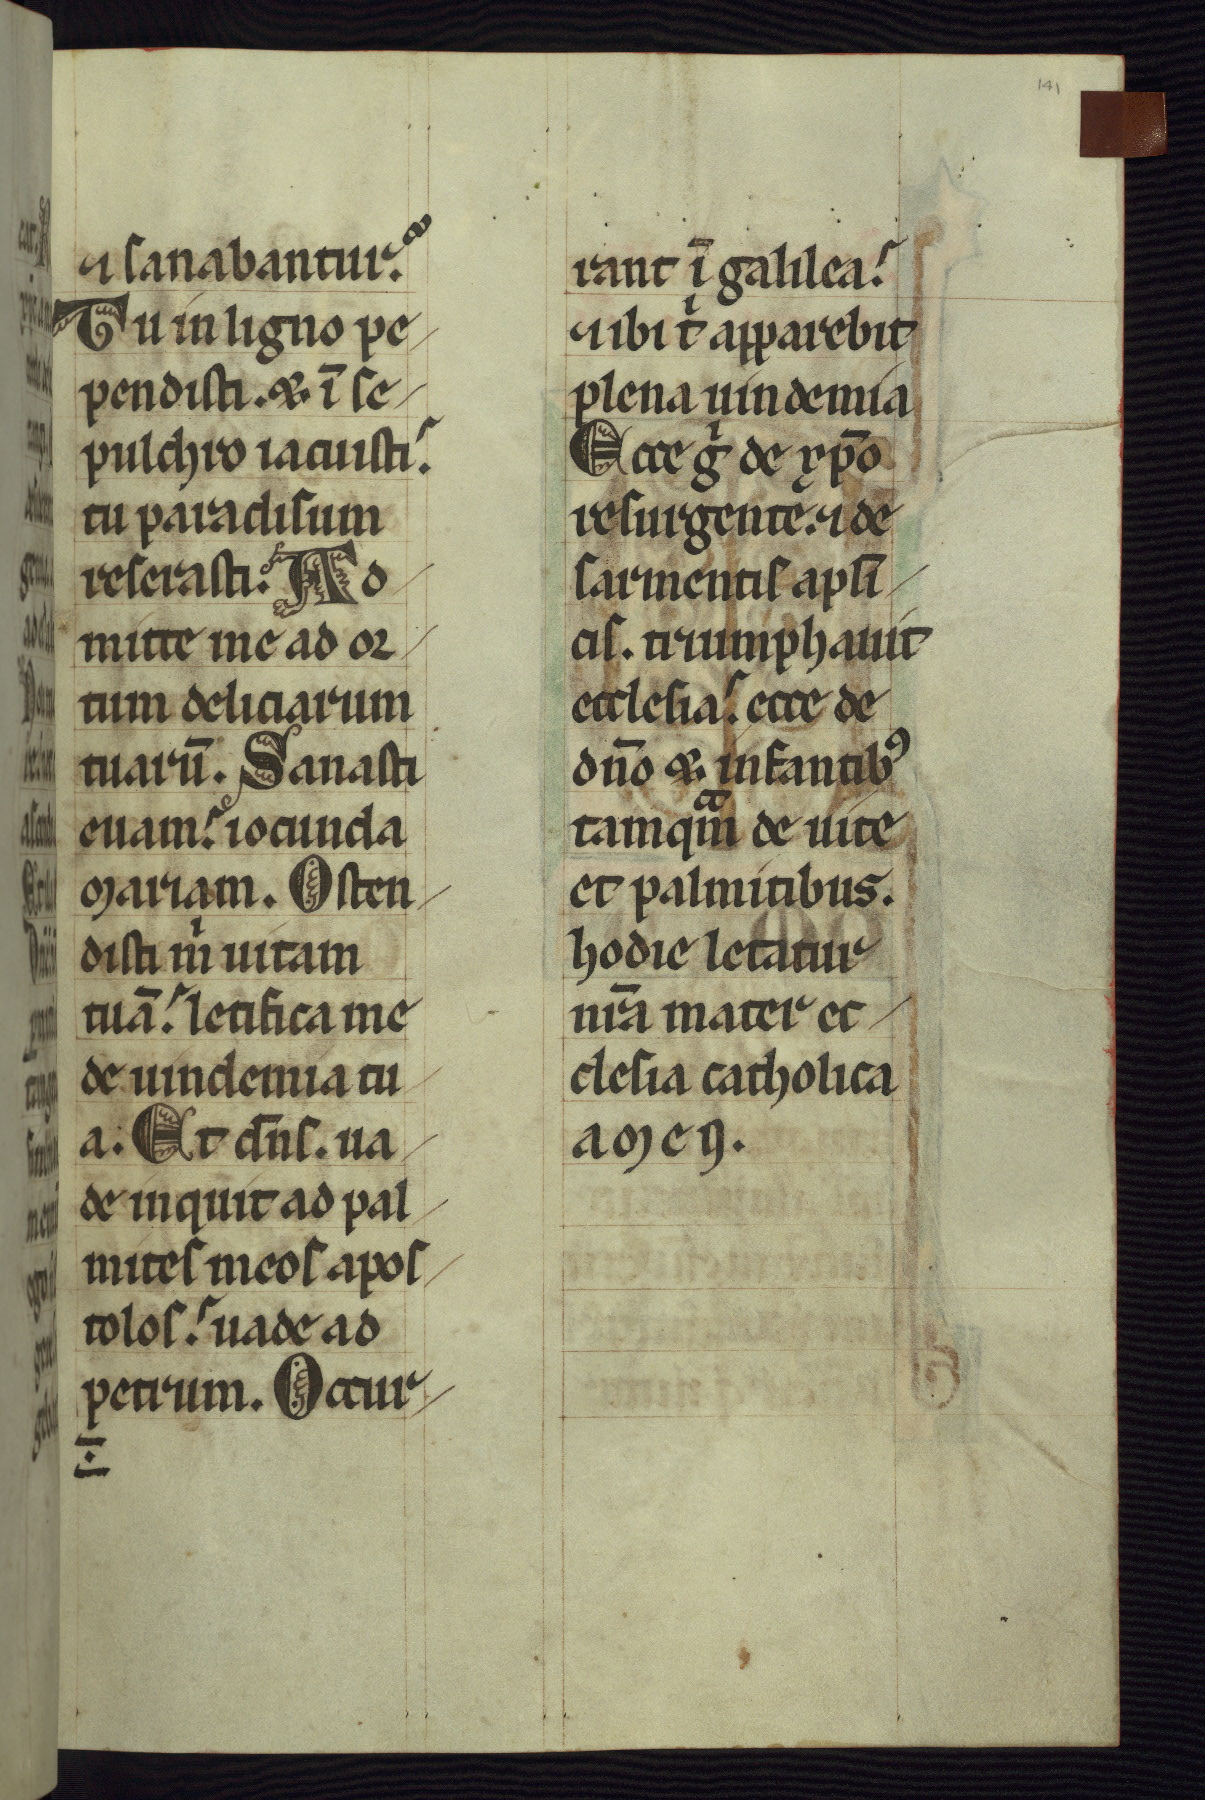 141
⁊ sanabantur.
Tu in ligno pe
pendisti. & ī se
pulchro iacuisti.
tu paradisum
reserasti. Ad
mitte me ad or
tum deliciarum
tuarū. Sanasti
euam. iocunda
Mariam. Osten
disti mͥ uitam
tuā. letifica me
de uindemia tu
a. Et dn̄s. ua
de inquit ad pal
mites meos apos
tolos. uade ad
petrum. Occur
rant ī galilea.
⁊ ibi tͥ apparebit
plena uindemia
Ecce gͥ de xp̄o
resurgente. ⁊ de
sarmentis apl̄i
cis. triumphauit
ecclesia. ecce de
dn̄o & infantibꝰ
tamqᵃm de uite
et palmitibus.
hodie letatur
nr̄a mater ec
clesia catholica
aMeN.